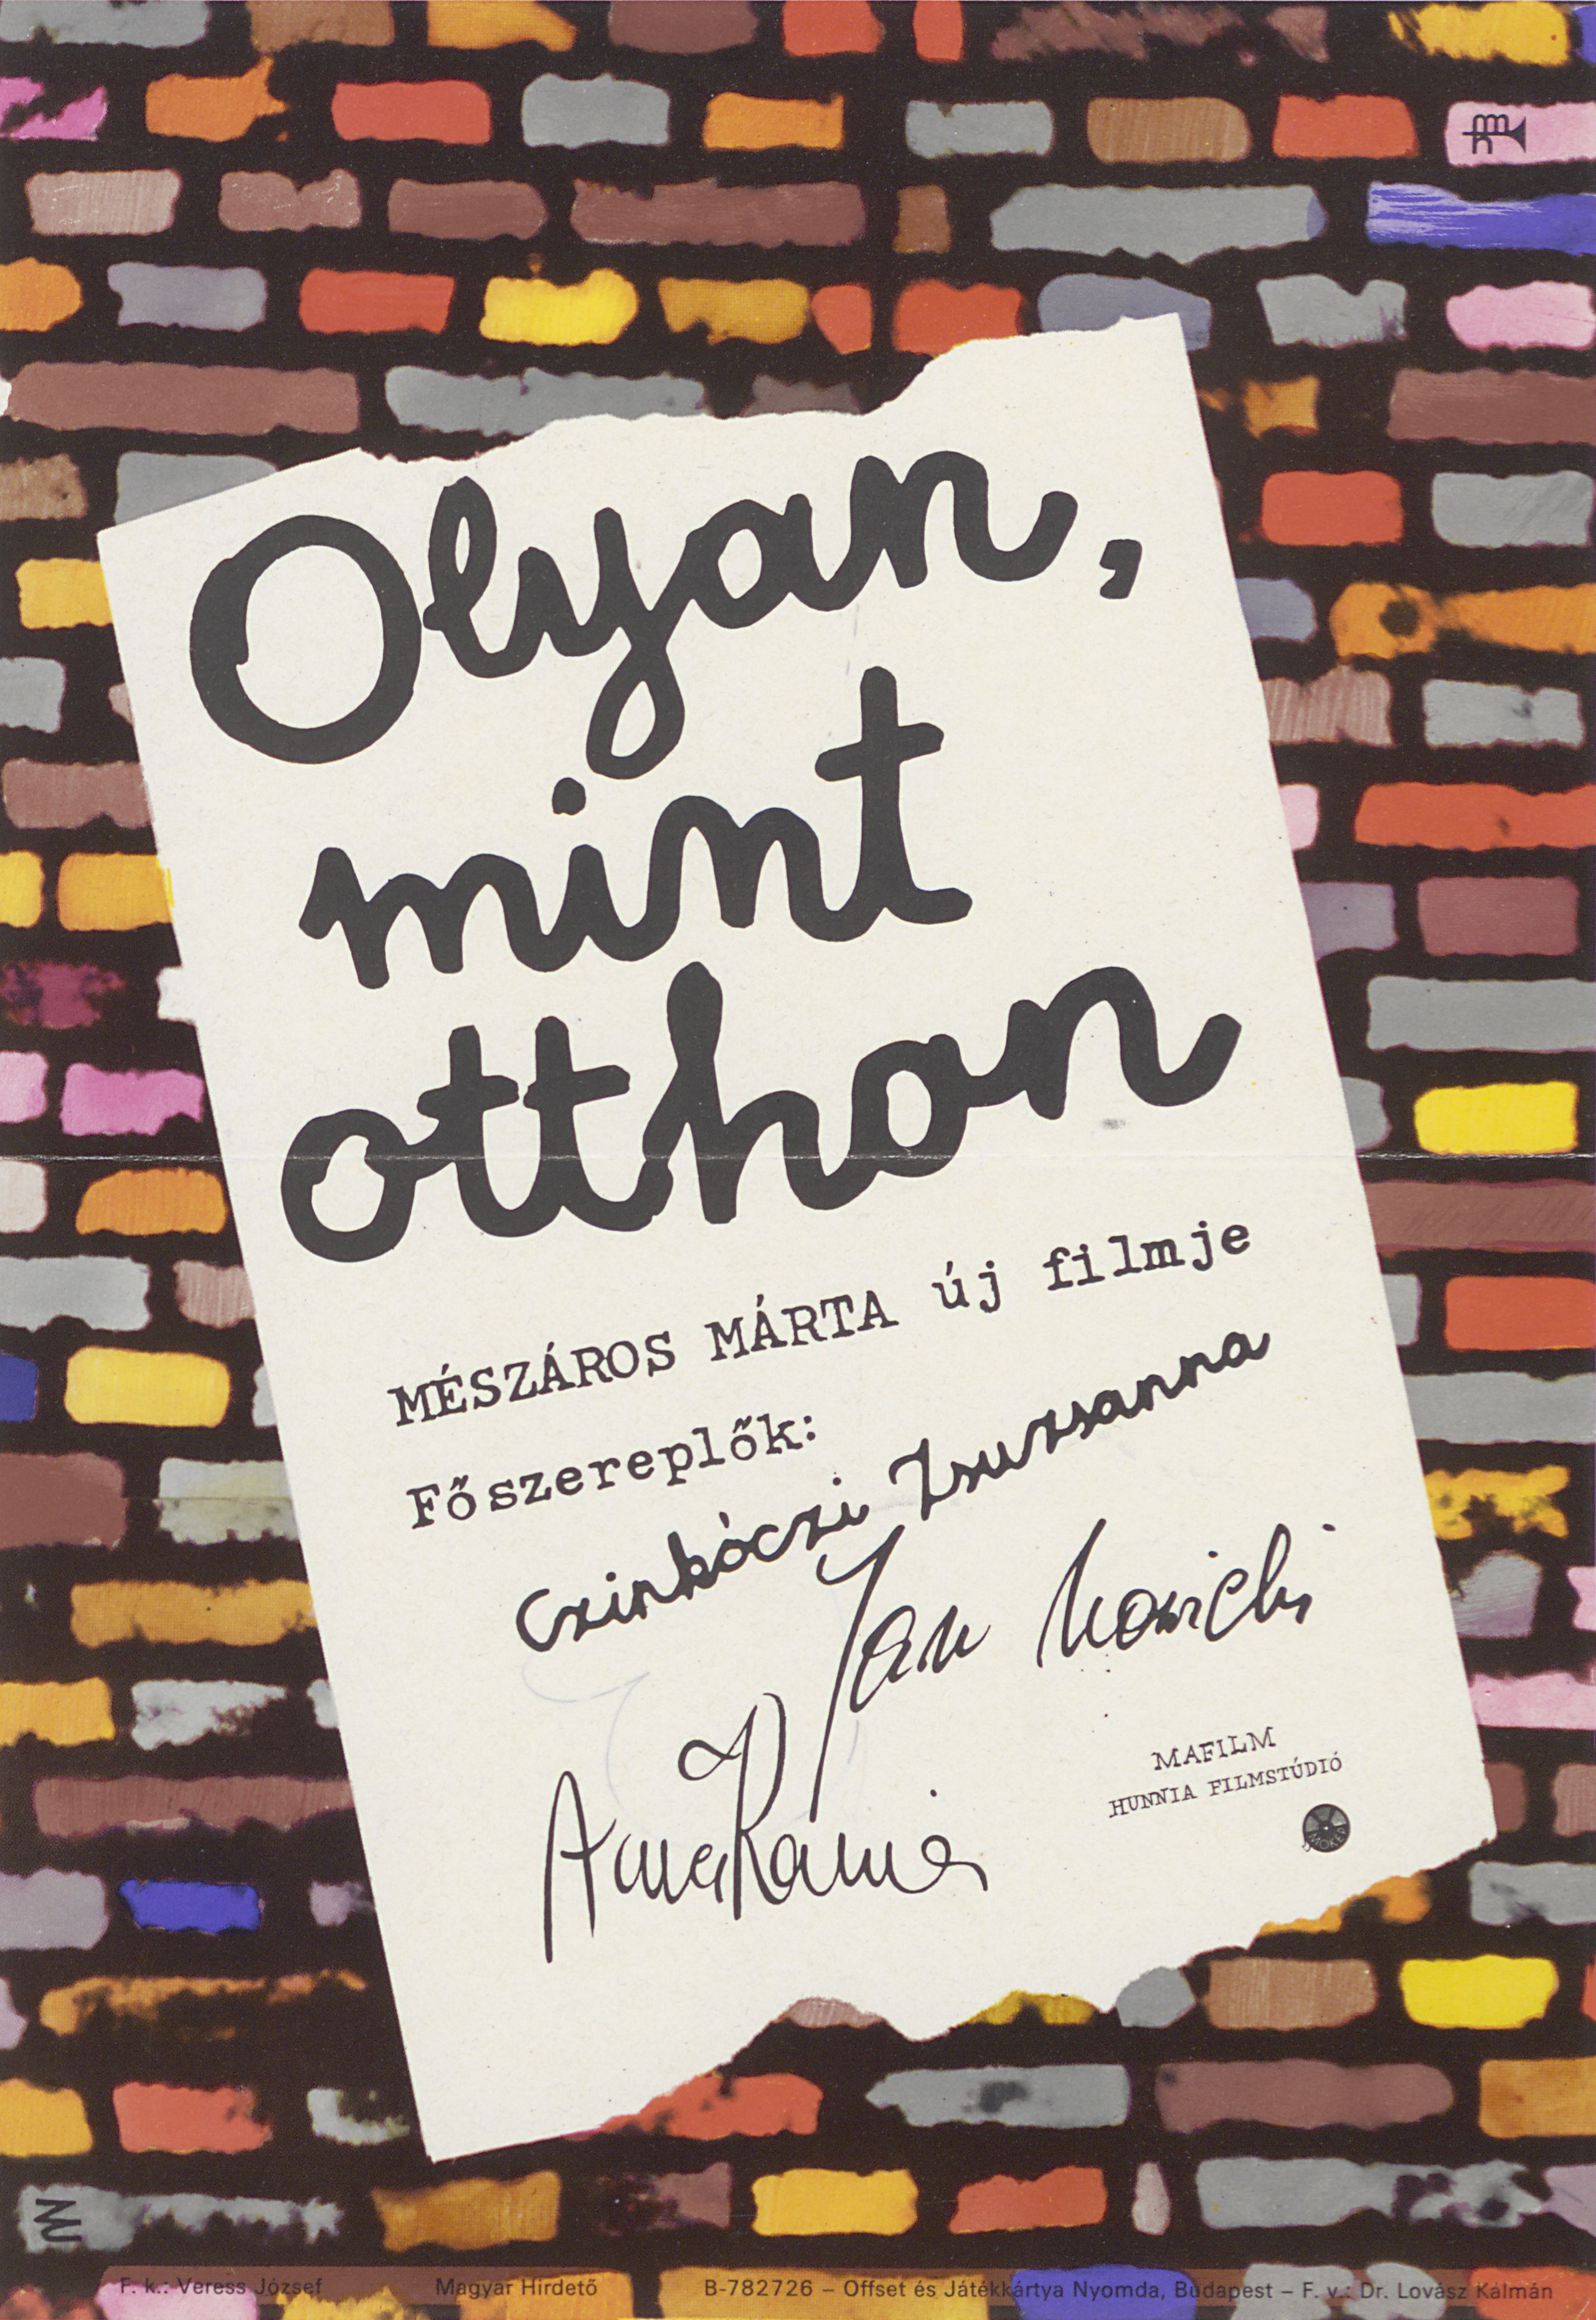 Olyan,
mint
otthon
MÉSZÁROS MÁRTA új filmje
Főszereplők:
Czinkóczi Zsuzsanna
Jan Nowicki
Anna Karina
MAFILM
HUNNIA FILMSTÚDIÓ
MOKÉP
F. k.: Veress József Magyar Hirdető B-782726 – Offset és Játékkártya Nyomda, Budapest – F. v.: Dr. Lovász Kálmán